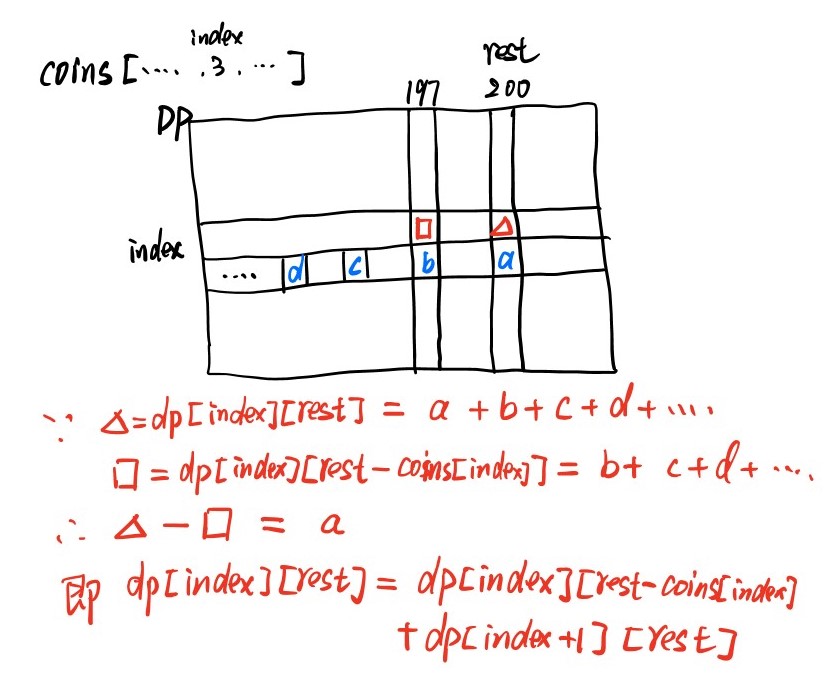 index
coins [ .... , 3 , ... ]
rest
197 200
DP
□ △
index
.... d c b a
∵ △=dp[index][rest] = a + b + c + d + ....
□ = dp[index][rest-coins[index]] = b + c + d + ....
∴ △ - □ = a
即 dp[index][rest] = dp[index][rest-coins[index]
+ dp[index+1][rest]